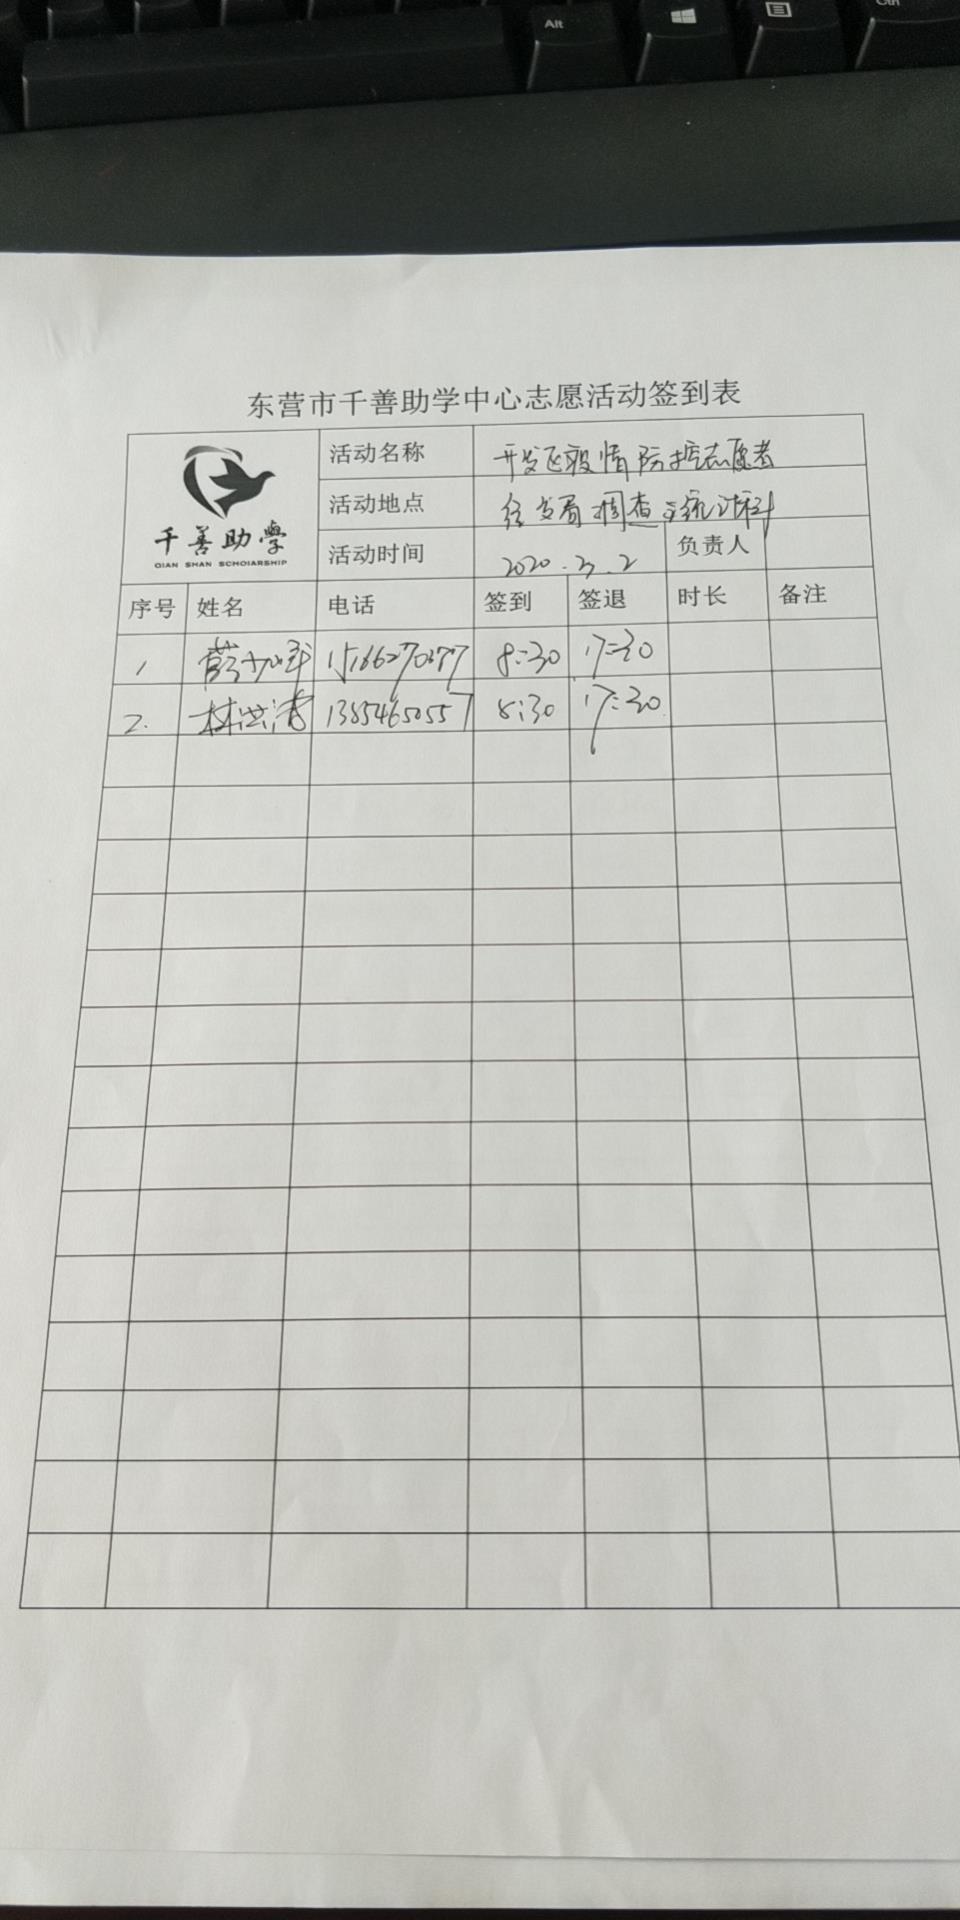 Alt
Ctrl
东营市千善助学中心志愿活动签到表
千善助學
QIAN SHAN SCHOIARSHIP
活动名称 开发区疫情防控志愿者
活动地点 经发局调查统计科
活动时间 2020.3.2 负责人
序号 姓名 电话 签到 签退 时长 备注
1 8:30 17:30
2. 林洪涛 13854650557 8:30 17:30